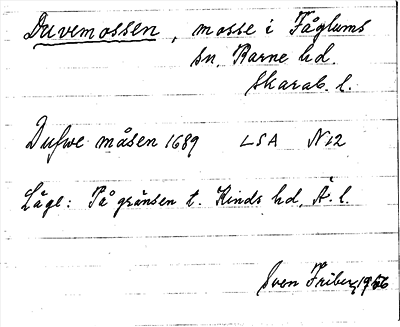 Duvemossen, mosse i Fåglums
sn. Barne hd.
Skarab. l.
Dufwe måsen 1689 LSA N12
Läge: På gränsen t. Kinds hd, Ä. l.
Sven Friberg 1956